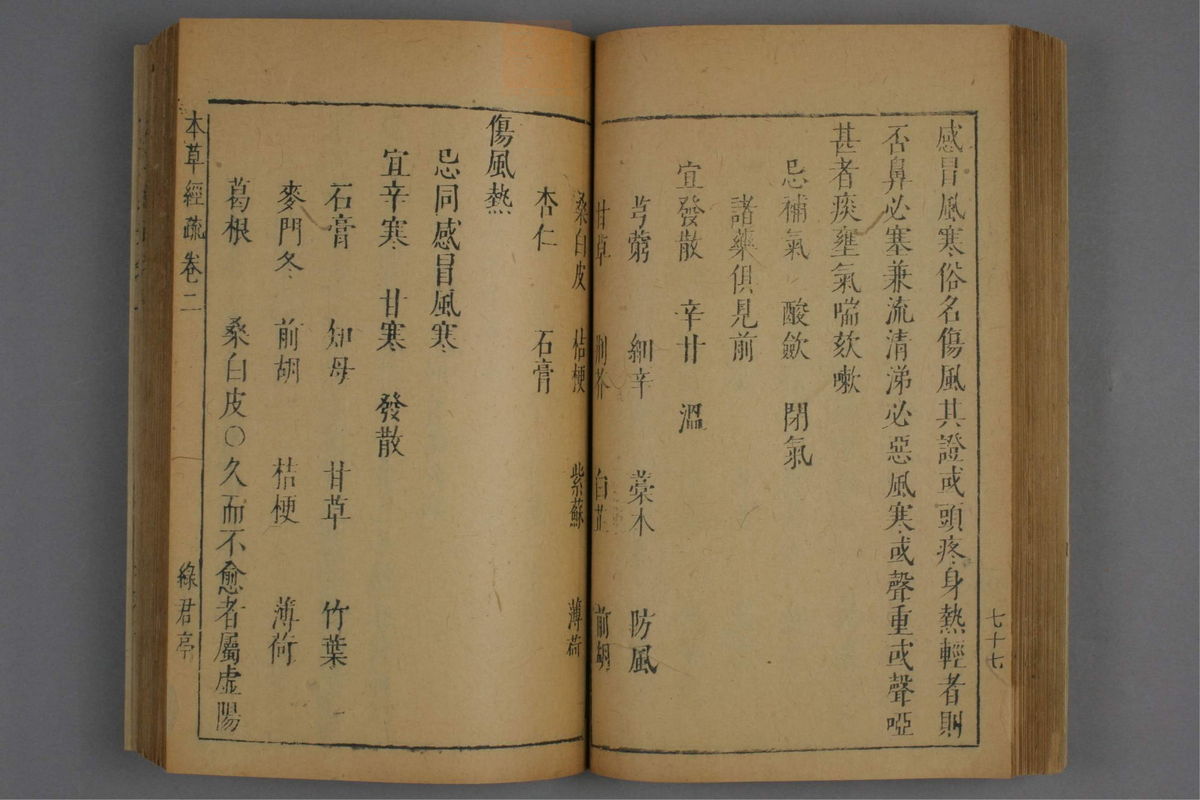 七十七
感冒風寒俗名傷風其證或頭疼身熱輕者則
否鼻必塞兼流清涕必惡風寒或聲重或聲啞
甚者痰壅氣喘欬嗽
忌補氣 酸斂 閉氣
諸藥俱見前
宜發散 辛甘 溫
芎藭 細辛 藁本 防風
甘草 荊芥 白芷 前胡
桑白皮 桔梗 紫蘇 薄荷
杏仁 石膏
傷風熱
忌同感冒風寒
宜辛寒 甘寒 發散
石膏 知母 甘草 竹葉
麥門冬 前胡 桔梗 薄荷
葛根 桑白皮○久而不愈者屬虛陽
本草經疏 卷二 綠君亭